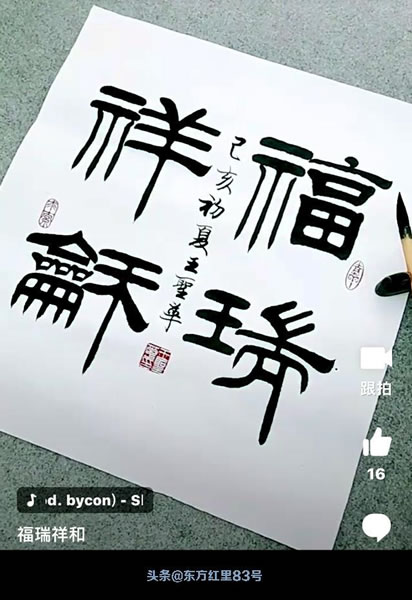 福瑞
己亥初夏王聖華
祥龢
跟拍
16
d. bycon) - S
福瑞祥和
头条@东方红里83号